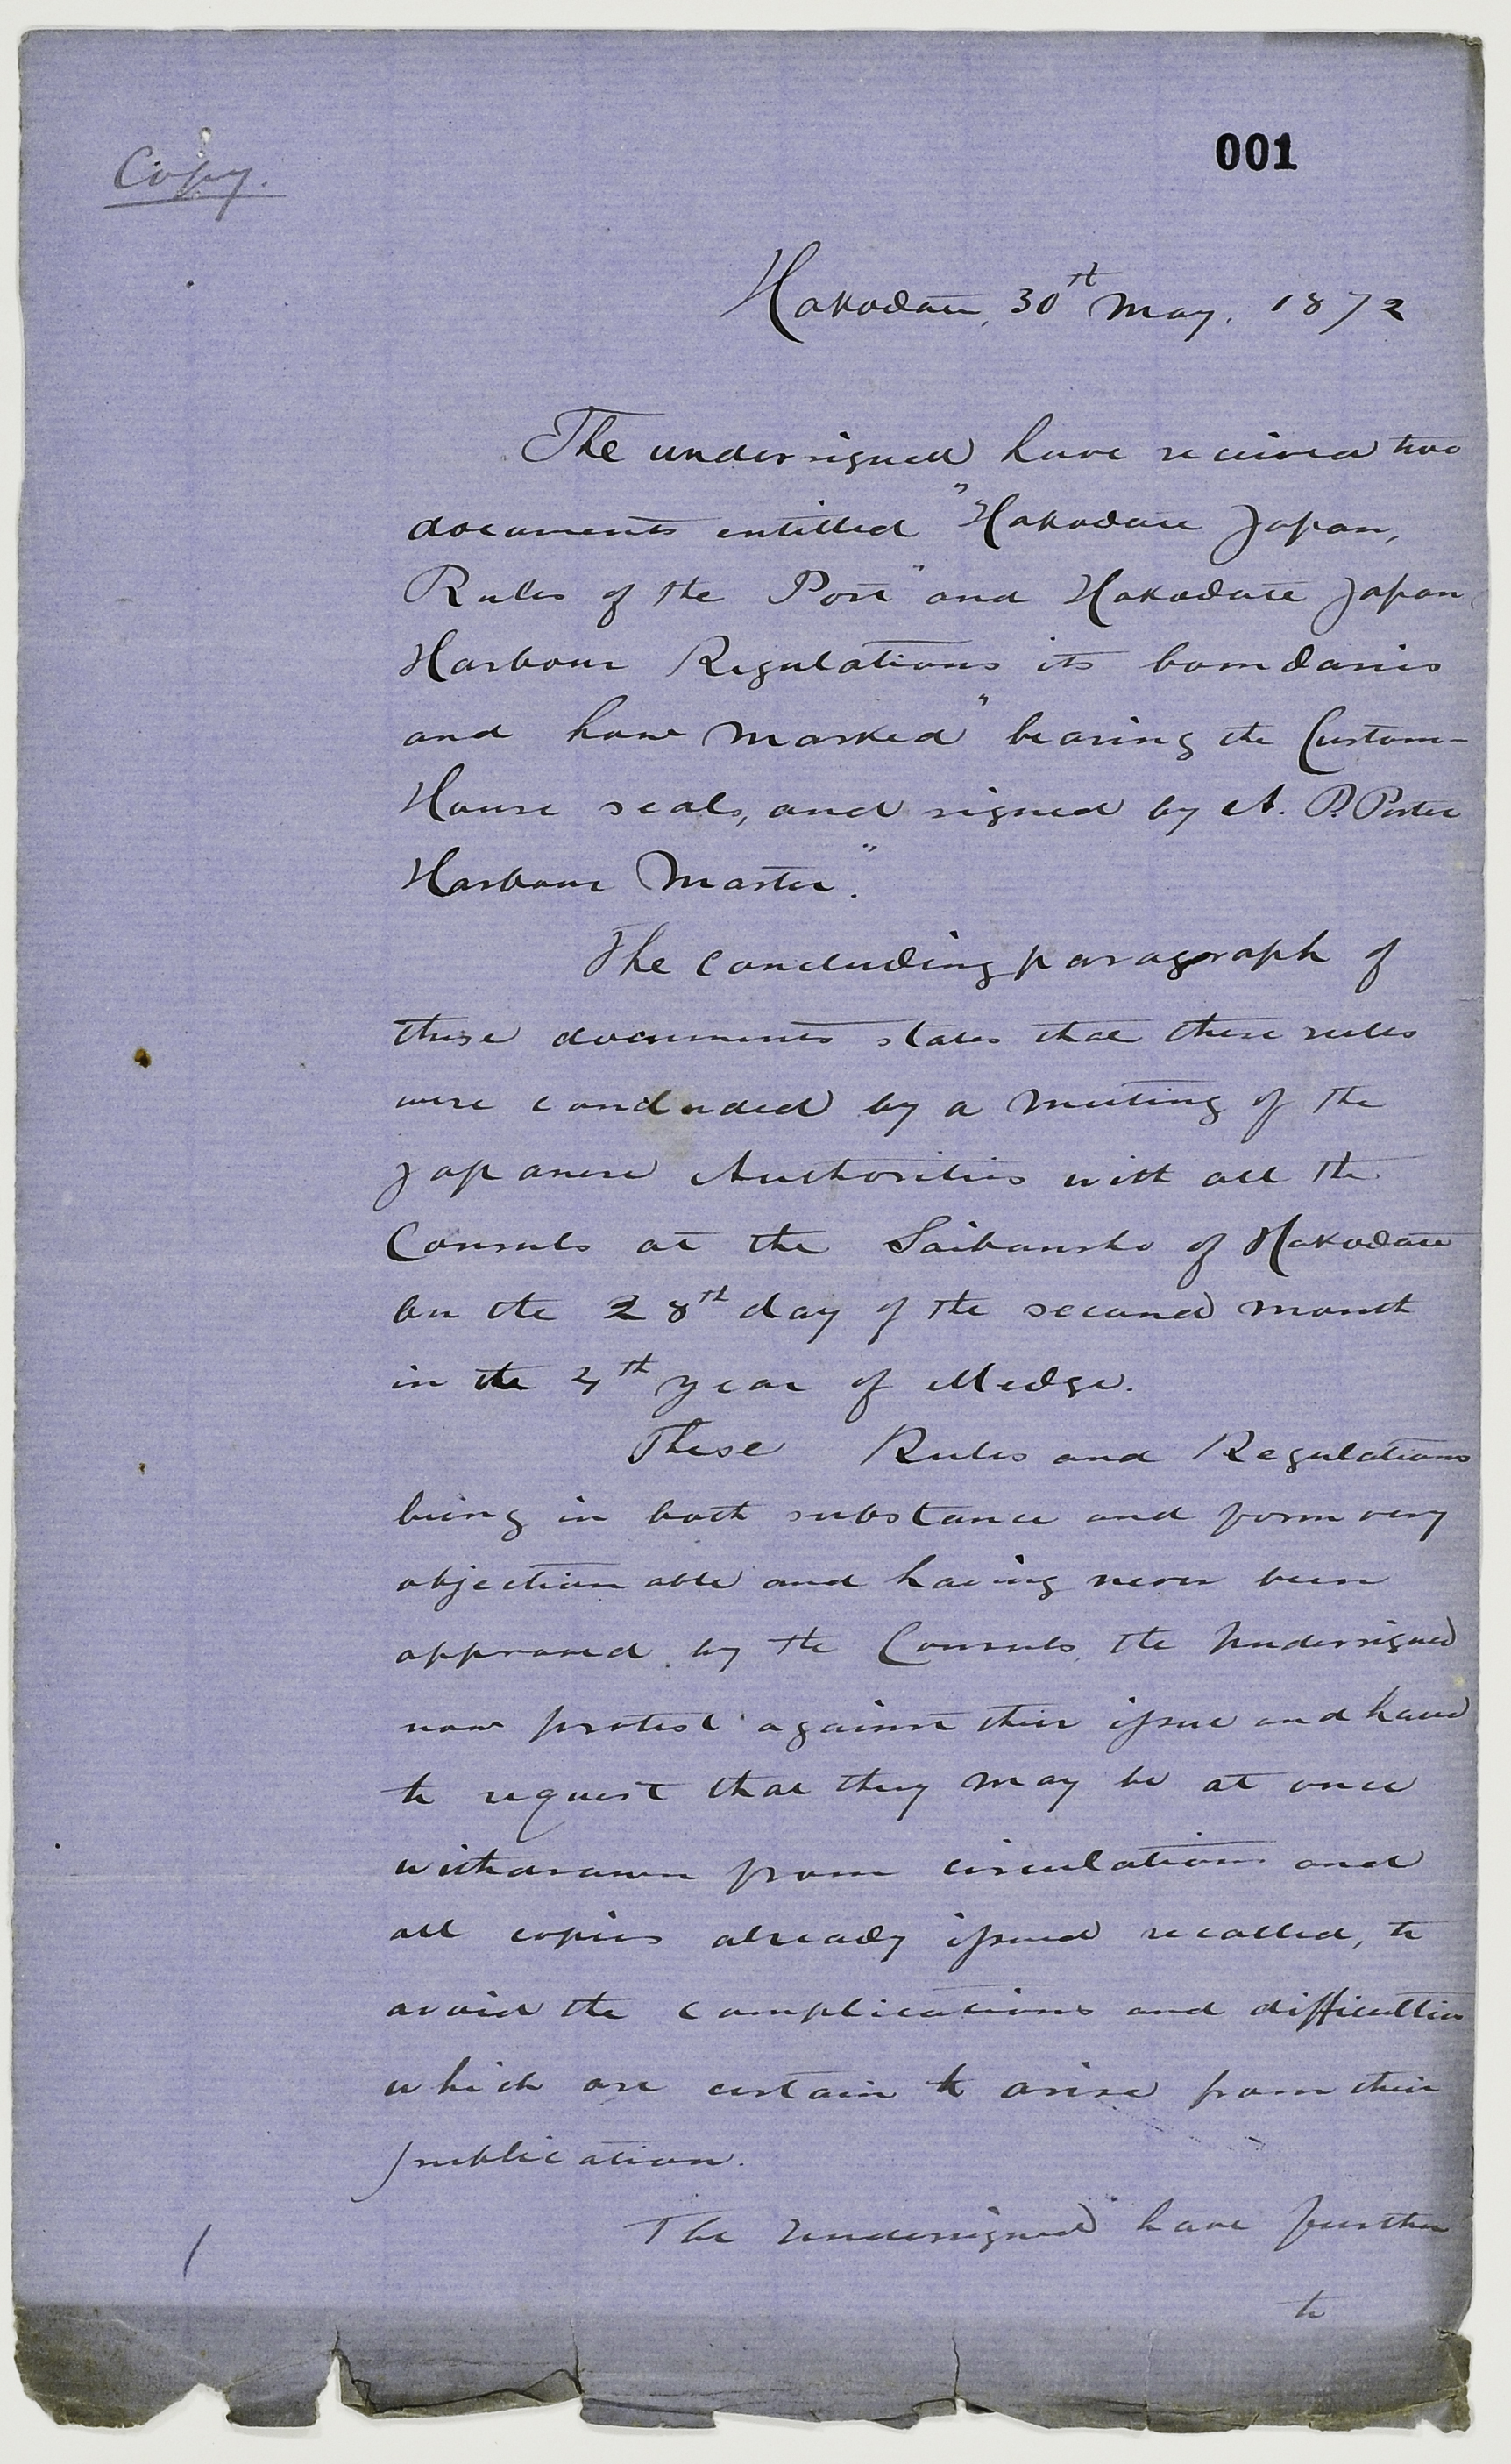 Copy.
001
Hakodate, 30th May. 1872
The undersigned have received two
documents entitled "Hakodate Japan,
Rules of the Port" and Hakodate Japan
Harbour Regulations its boundaries
and how marked" bearing the Custom-
House seals, and signed by A. P. Porter
Harbour Master."
The concluding paragraph of
these documents states that these rules
were concluded by a meeting of the
Japanese Authorities with all the
Consuls at the Saibansho of Hakodate
on the 28th day of the second month
in the 4th year of Medge.
These Rules and Regulations
being in both substance and form very
objectionable and having never been
approved by the Consuls, the Undersigned
now protest against their issue and have
to request that they may be at once
withdrawn from circulation and
all copies already issued recalled, to
avoid the complications and difficulties
which are certain to arise from their
publication.
The Undersigned have further
to